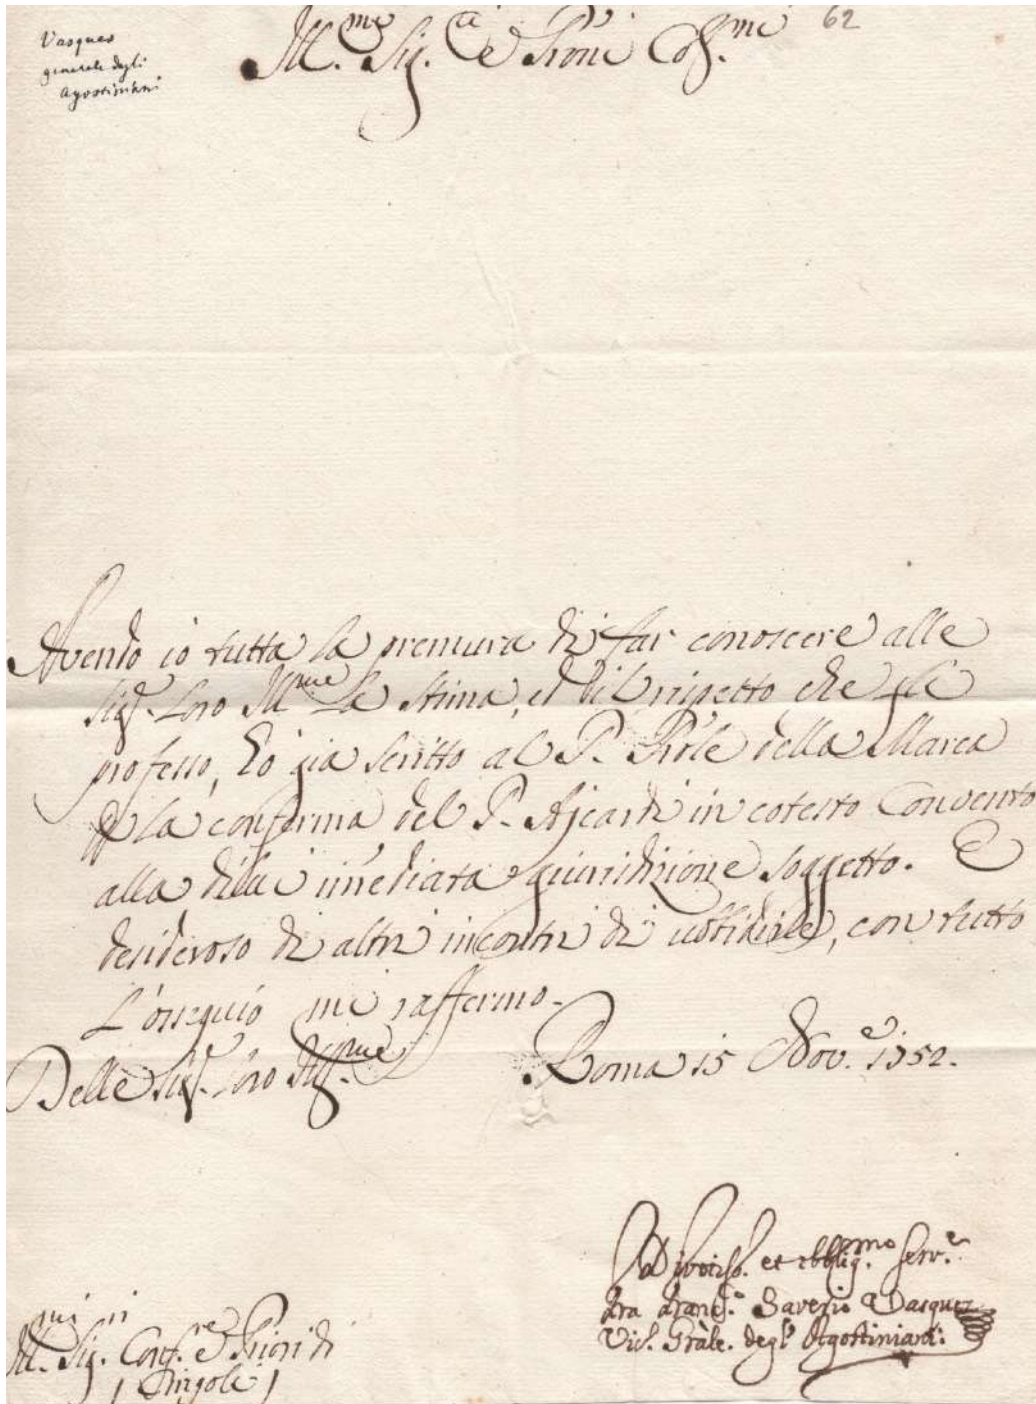 Vasquez
generale degli
Agostiniani
62
Ill.mi Sig.ri e Proni Coll.mi
Avendo io tutta la premura di far conoscere alle
Sig.e Loro Ill.me la stima, ed il rispetto che le
professo, hò già scritto al P. Prôle della Marca
p la conferma del P. Ajcardi in cotesto Convento
alla di lui imediata giurisdizione soggetto. E
desideroso di altri incontri di ubbidirle, con tutto
l'ossequio mi raffermo.
Delle Sig.e Loro Ill.me
Roma 15 Nov.e 1752.
Divotiss.o et obblig.mo Serv.e
fra Franc.o Saverio Vasquez
Vic. Grâle. degl'Agostiniani.
Ill.mi Sig.ri Conf.re e Priori di
Cingoli